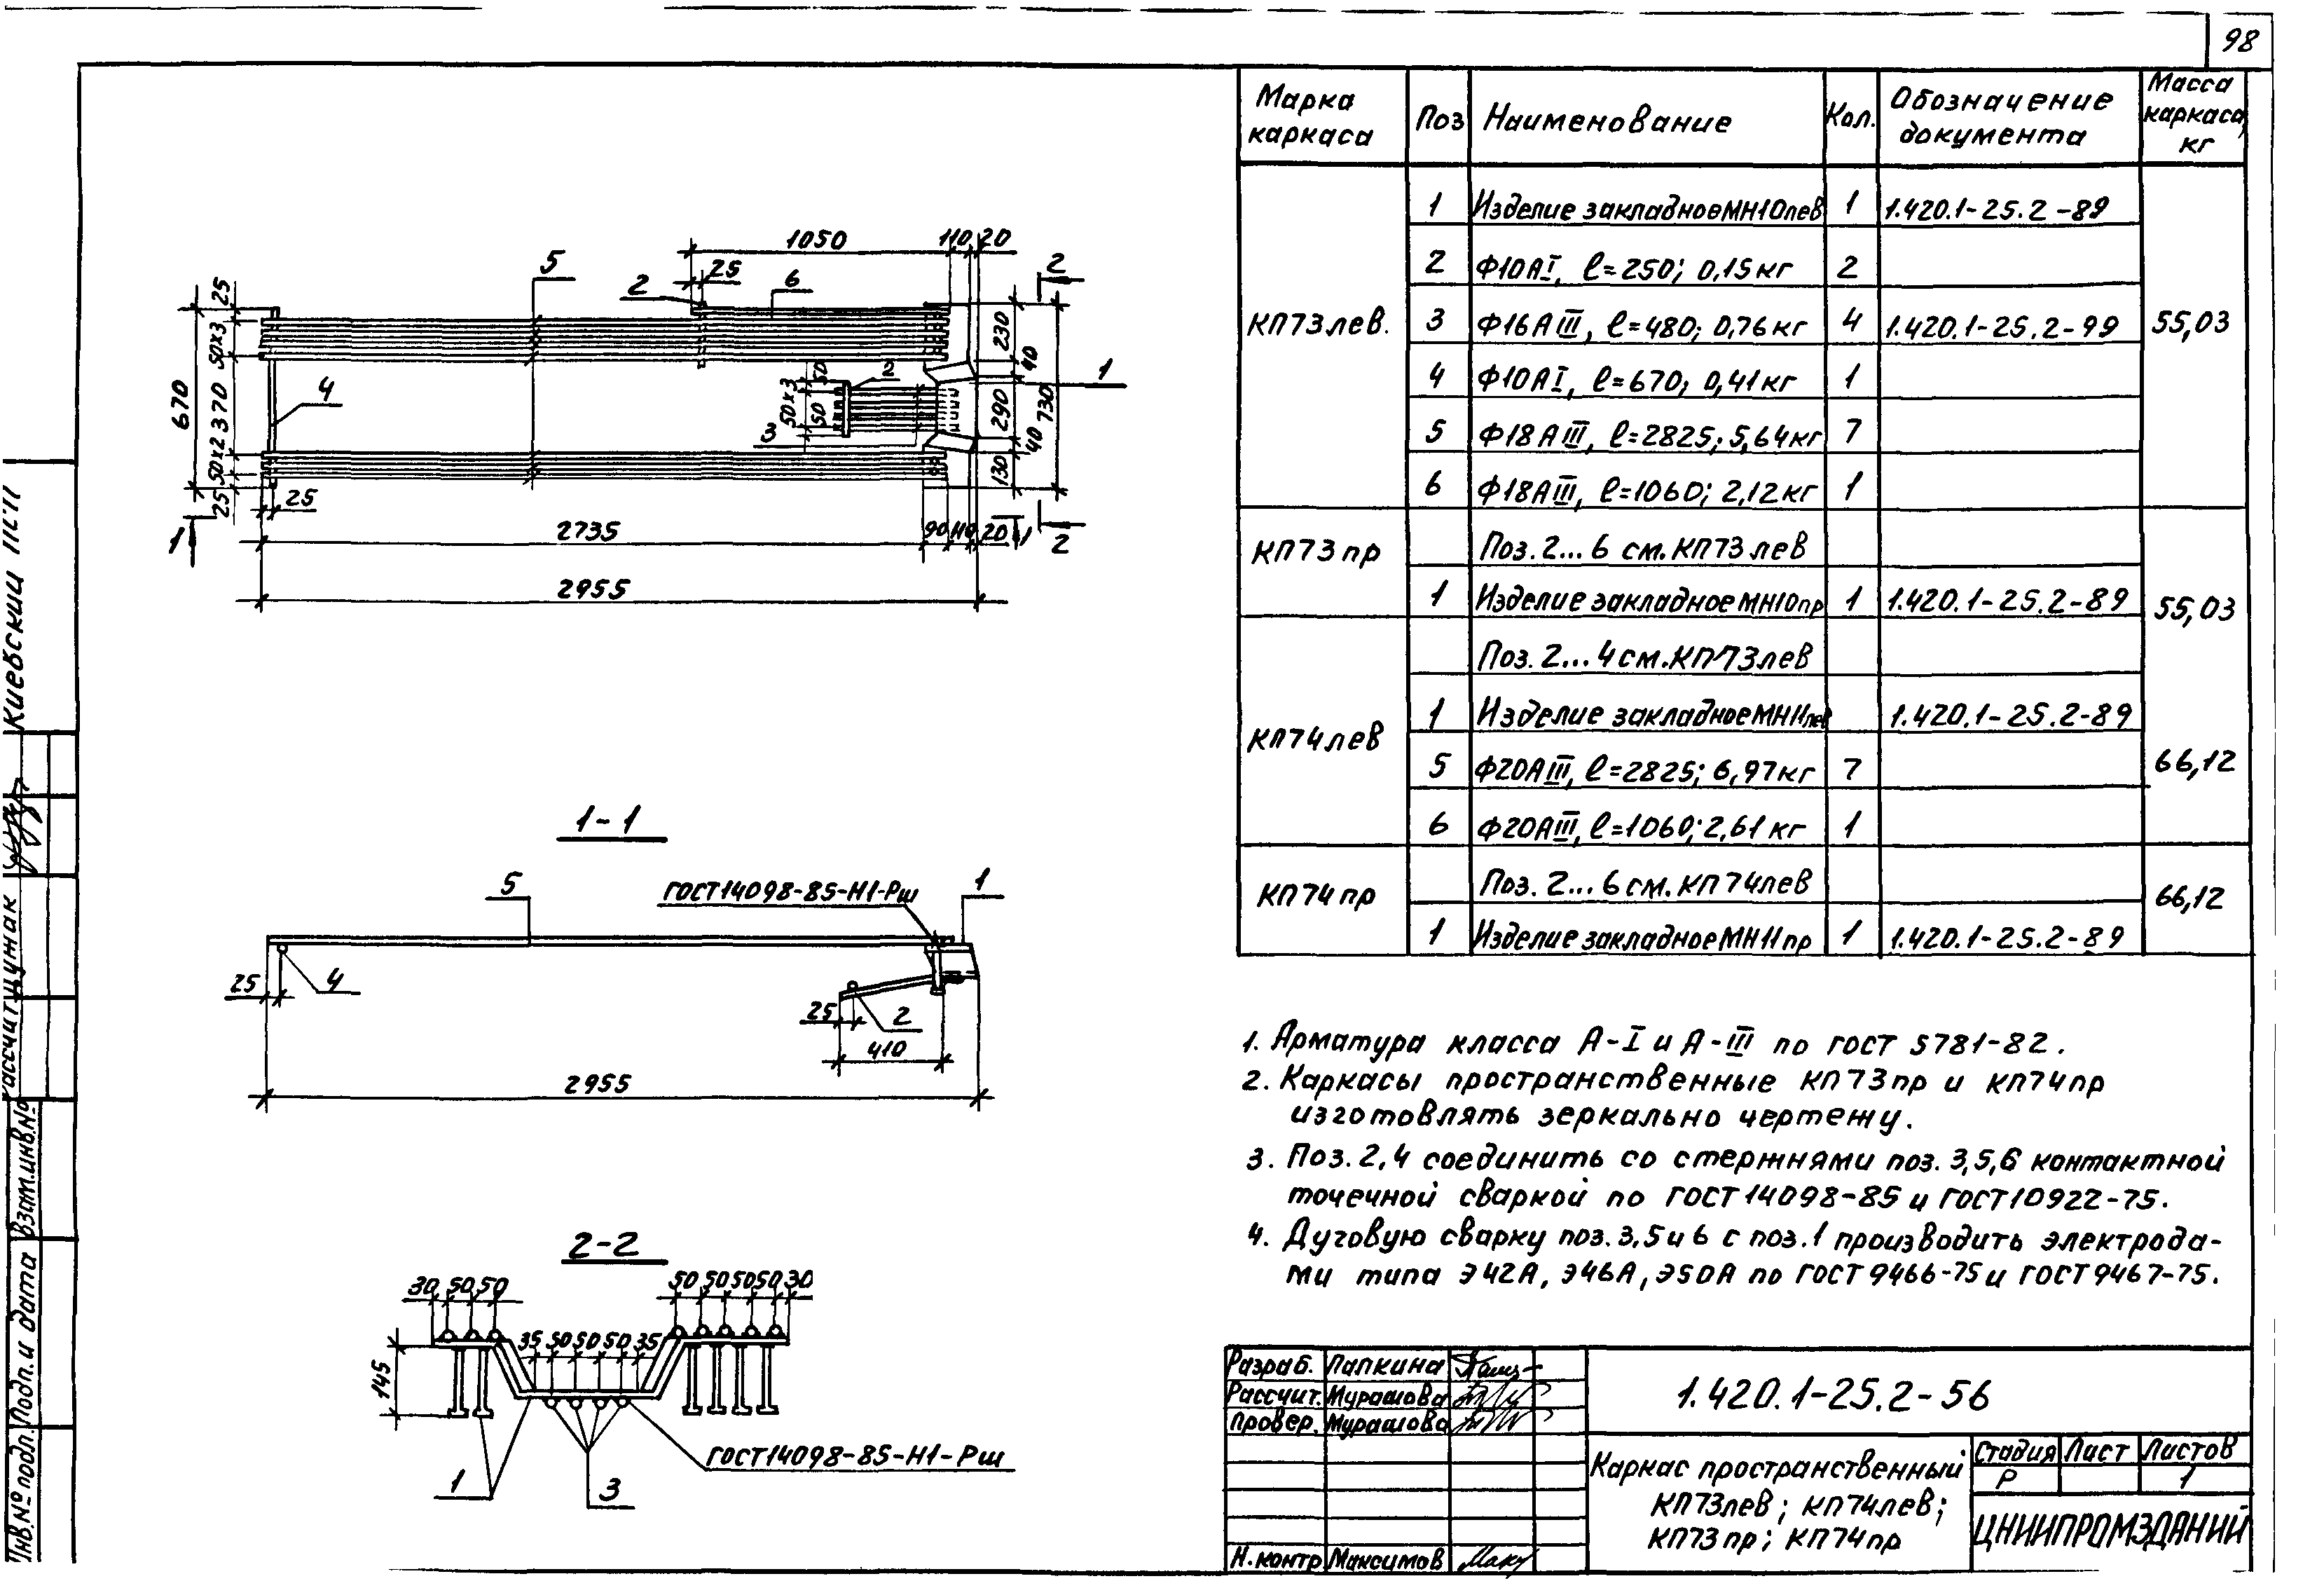 98
Марка каркаса
Поз
Наименование
Кол.
Обозначение документа
Масса каркаса, кг
КП73лев.
1 Изделие закладноеМН10лев 1 1.420.1-25.2-89
2 Ф10АI, ℓ=250; 0,15кг 2
3 Ф16АIII, ℓ=480; 0,76кг 4 1.420.1-25.2-99 55,03
4 Ф10АI, ℓ=670; 0,41кг 1
5 Ф18АIII, ℓ=2825; 5,64кг 7
6 Ф18АIII, ℓ=1060; 2,12кг 1
КП73пр
Поз. 2...6 см. КП73лев
1 Изделие закладноеМН10пр 1 1.420.1-25.2-89 55,03
КП74лев
Поз. 2...4 см. КП73лев
1 Изделие закладноеМН11лев 1.420.1-25.2-89
5 Ф20АIII, ℓ=2825; 6,97кг 7 66,12
6 Ф20АIII, ℓ=1060; 2,61кг 1
КП74пр
Поз. 2...6 см. КП74лев 66,12
1 Изделие закладноеМН11пр 1 1.420.1-25.2-89
1050 110 20
25
5 2 6 2
25
50х3
670
370
50х2
25
4
50х3
50
50
2
3
230
40
290
730
40
130
1
25
1
2735 90 110 20 1 2
2955
1-1
5
ГОСТ14098-85-Н1-Рш
1
25 4
25 2
410
2955
2-2
30 50 50
50 50 50 50 30
35 50 50 50 35
145
ГОСТ14098-85-Н1-Рш
1 3
1. Арматура класса А-I и А-III по ГОСТ 5781-82.
2. Каркасы пространственные КП73пр и КП74пр
изготовлять зеркально чертежу.
3. Поз. 2,4 соединить со стержнями поз. 3,5,6 контактной
точечной сваркой по ГОСТ14098-85 и ГОСТ10922-75.
4. Дуговую сварку поз. 3,5 и 6 с поз. 1 производить электрода-
ми типа Э42А, Э46А, Э50А по ГОСТ9466-75 и ГОСТ9467-75.
Разраб. Папкина
Рассчит. Мурашова
Провер. Мурашова
Н.контр Максимов
1.420.1-25.2-56
Каркас пространственный
КП73лев; КП74лев;
КП73пр; КП74пр
Стадия Лист Листов
Р 1
ЦНИИПРОМЗДАНИЙ
Киевский ПСП
Взам.инв.№
Подп. и дата
Инв.№ подл.